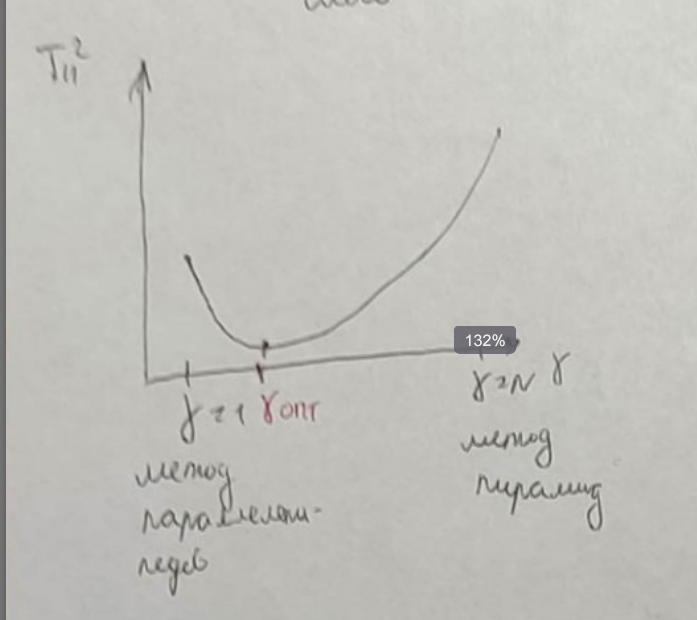 T₁₁²
132%
γ=1 γопт
γ=N γ
метод
параллелепи-
педов
метод
пирамид